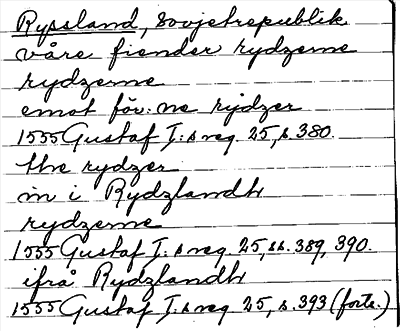 Ryssland, Sovjetrepublik
våre fiender rydzerne
rydzerne
emot för:ne rijdzer
1555 Gustaf I:s reg. 25, s. 380.
the rydzer
in i Rydzlandh
rydzerne
1555 Gustaf I:s reg. 25, ss. 389, 390.
ifrå Rydzlandh
1555 Gustaf I:s reg. 25, s. 393 (forts.)